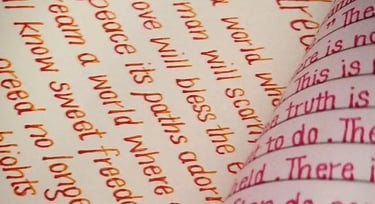 a world whe
man will scorn
ove will bless the e
peace its paths adorn
ream a world where
ll know sweet freed
reed no longe
blights
" The
re is no
This is
truth is
to do . The
ield . There i